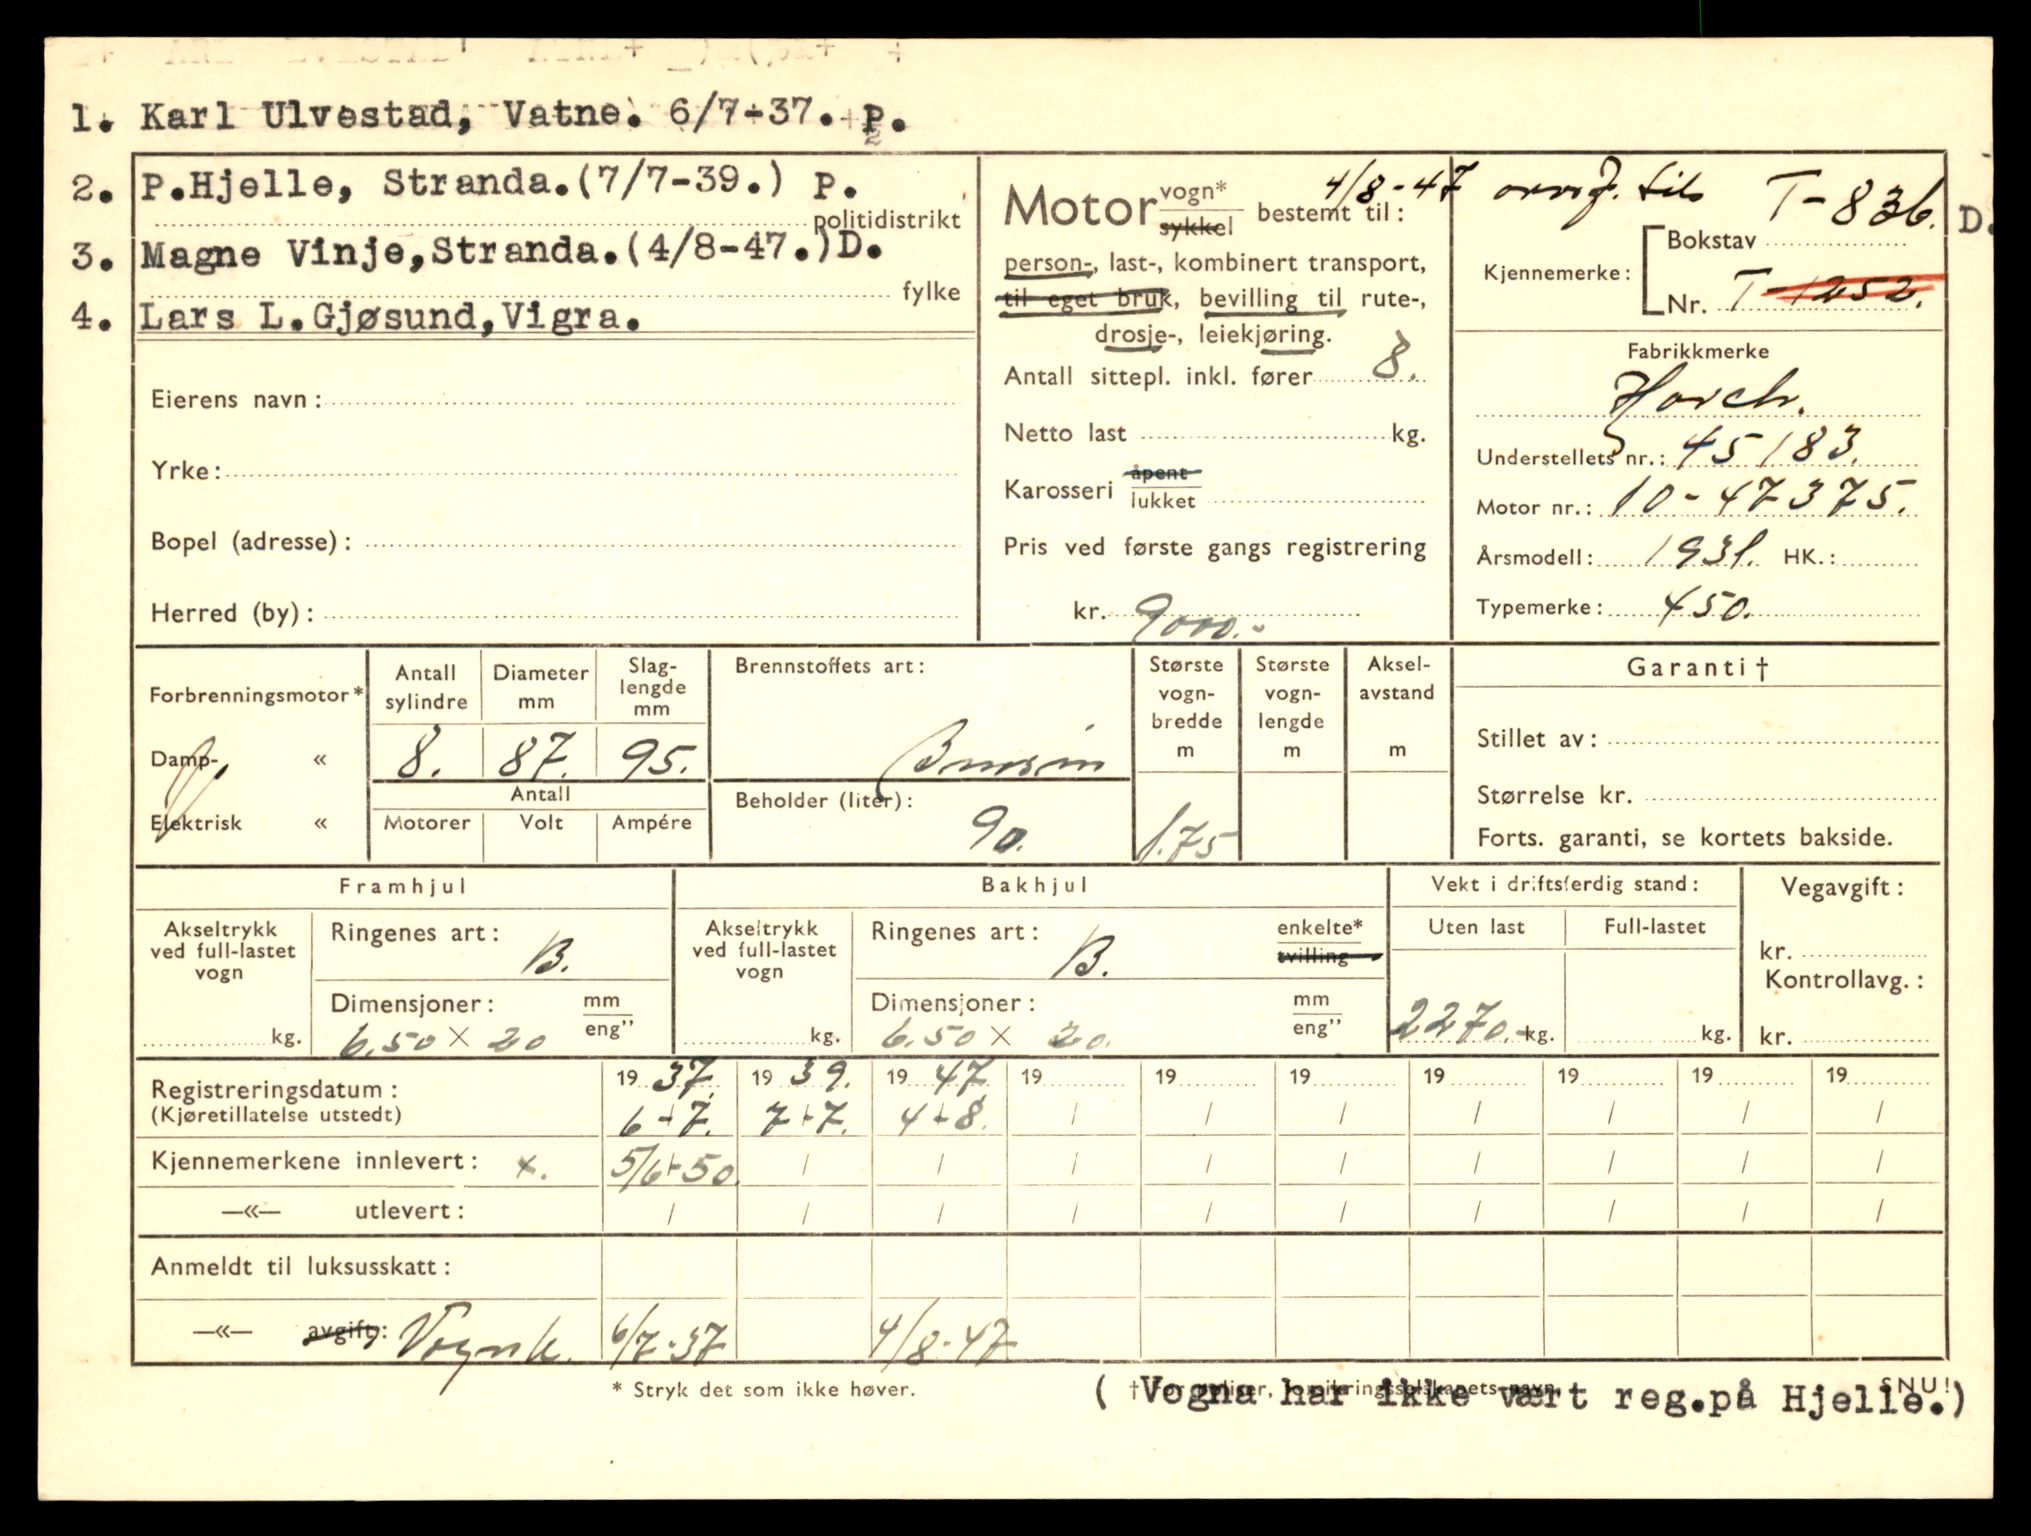 1. Karl Ulvestad, Vatne. 6/7-37. P.
2. P.Hjelle, Stranda.(7/7-39.) P.
politidistrikt
3. Magne Vinje,Stranda.(4/8-47.)D.
fylke
4. Lars L.Gjøsund,Vigra.
Eierens navn:
Yrke:
Bopel (adresse):
Herred (by):
Motor vogn* sykkel bestemt til:
person-, last-, kombinert transport,
til eget bruk, bevilling til rute-,
drosje-, leiekjøring.
Antall sittepl. inkl. fører 8.
Netto last kg.
Karosseri åpent lukket
Pris ved første gangs registrering
kr. 9000.-
4/8-47 til T-836. D.
Kjennemerke: Bokstav
Nr. T-1252.
Fabrikkmerke
Horch.
Understellets nr.: 45183.
Motor nr.: 10-47375.
Årsmodell: 1931. HK.:
Typemerke: 450.
Forbrenningsmotor*
Damp- «
Elektrisk «
Antall sylindre 8.
Diameter mm 87.
Slaglengde mm 95.
Antall
Motorer Volt Ampére
Brennstoffets art:
Bensin
Beholder (liter):
90.
Største vognbredde m 1.75
Største vognlengde m
Akselavstand m
Garanti †
Stillet av:
Størrelse kr.
Forts. garanti, se kortets bakside.
Framhjul
Akseltrykk ved full-lastet vogn kg.
Ringenes art: B.
Dimensjoner: mm eng"
6.50 x 20
Bakhjul
Akseltrykk ved full-lastet vogn kg.
Ringenes art: B. enkelte* tvilling
Dimensjoner: mm eng"
6.50 x 20.
Vekt i driftsferdig stand:
Uten last Full-lastet
2270.- kg. kg.
Vegavgift:
kr.
Kontrollavg.:
kr.
Registreringsdatum: 1937. 1939. 1947. 19 19 19 19 19 19 19
(Kjøretillatelse utstedt) 6-7. 7-7. 4-8. / / / / / / /
Kjennemerkene innlevert: x. 5/6-50. / / / / / / / / /
—«— utlevert: / / / / / / / / / /
Anmeldt til luksusskatt:
—«— avgift: Vognk. 6/7-37 4/8-47
* Stryk det som ikke høver.
SNU!
( Vogna har ikke vært reg.på Hjelle.)